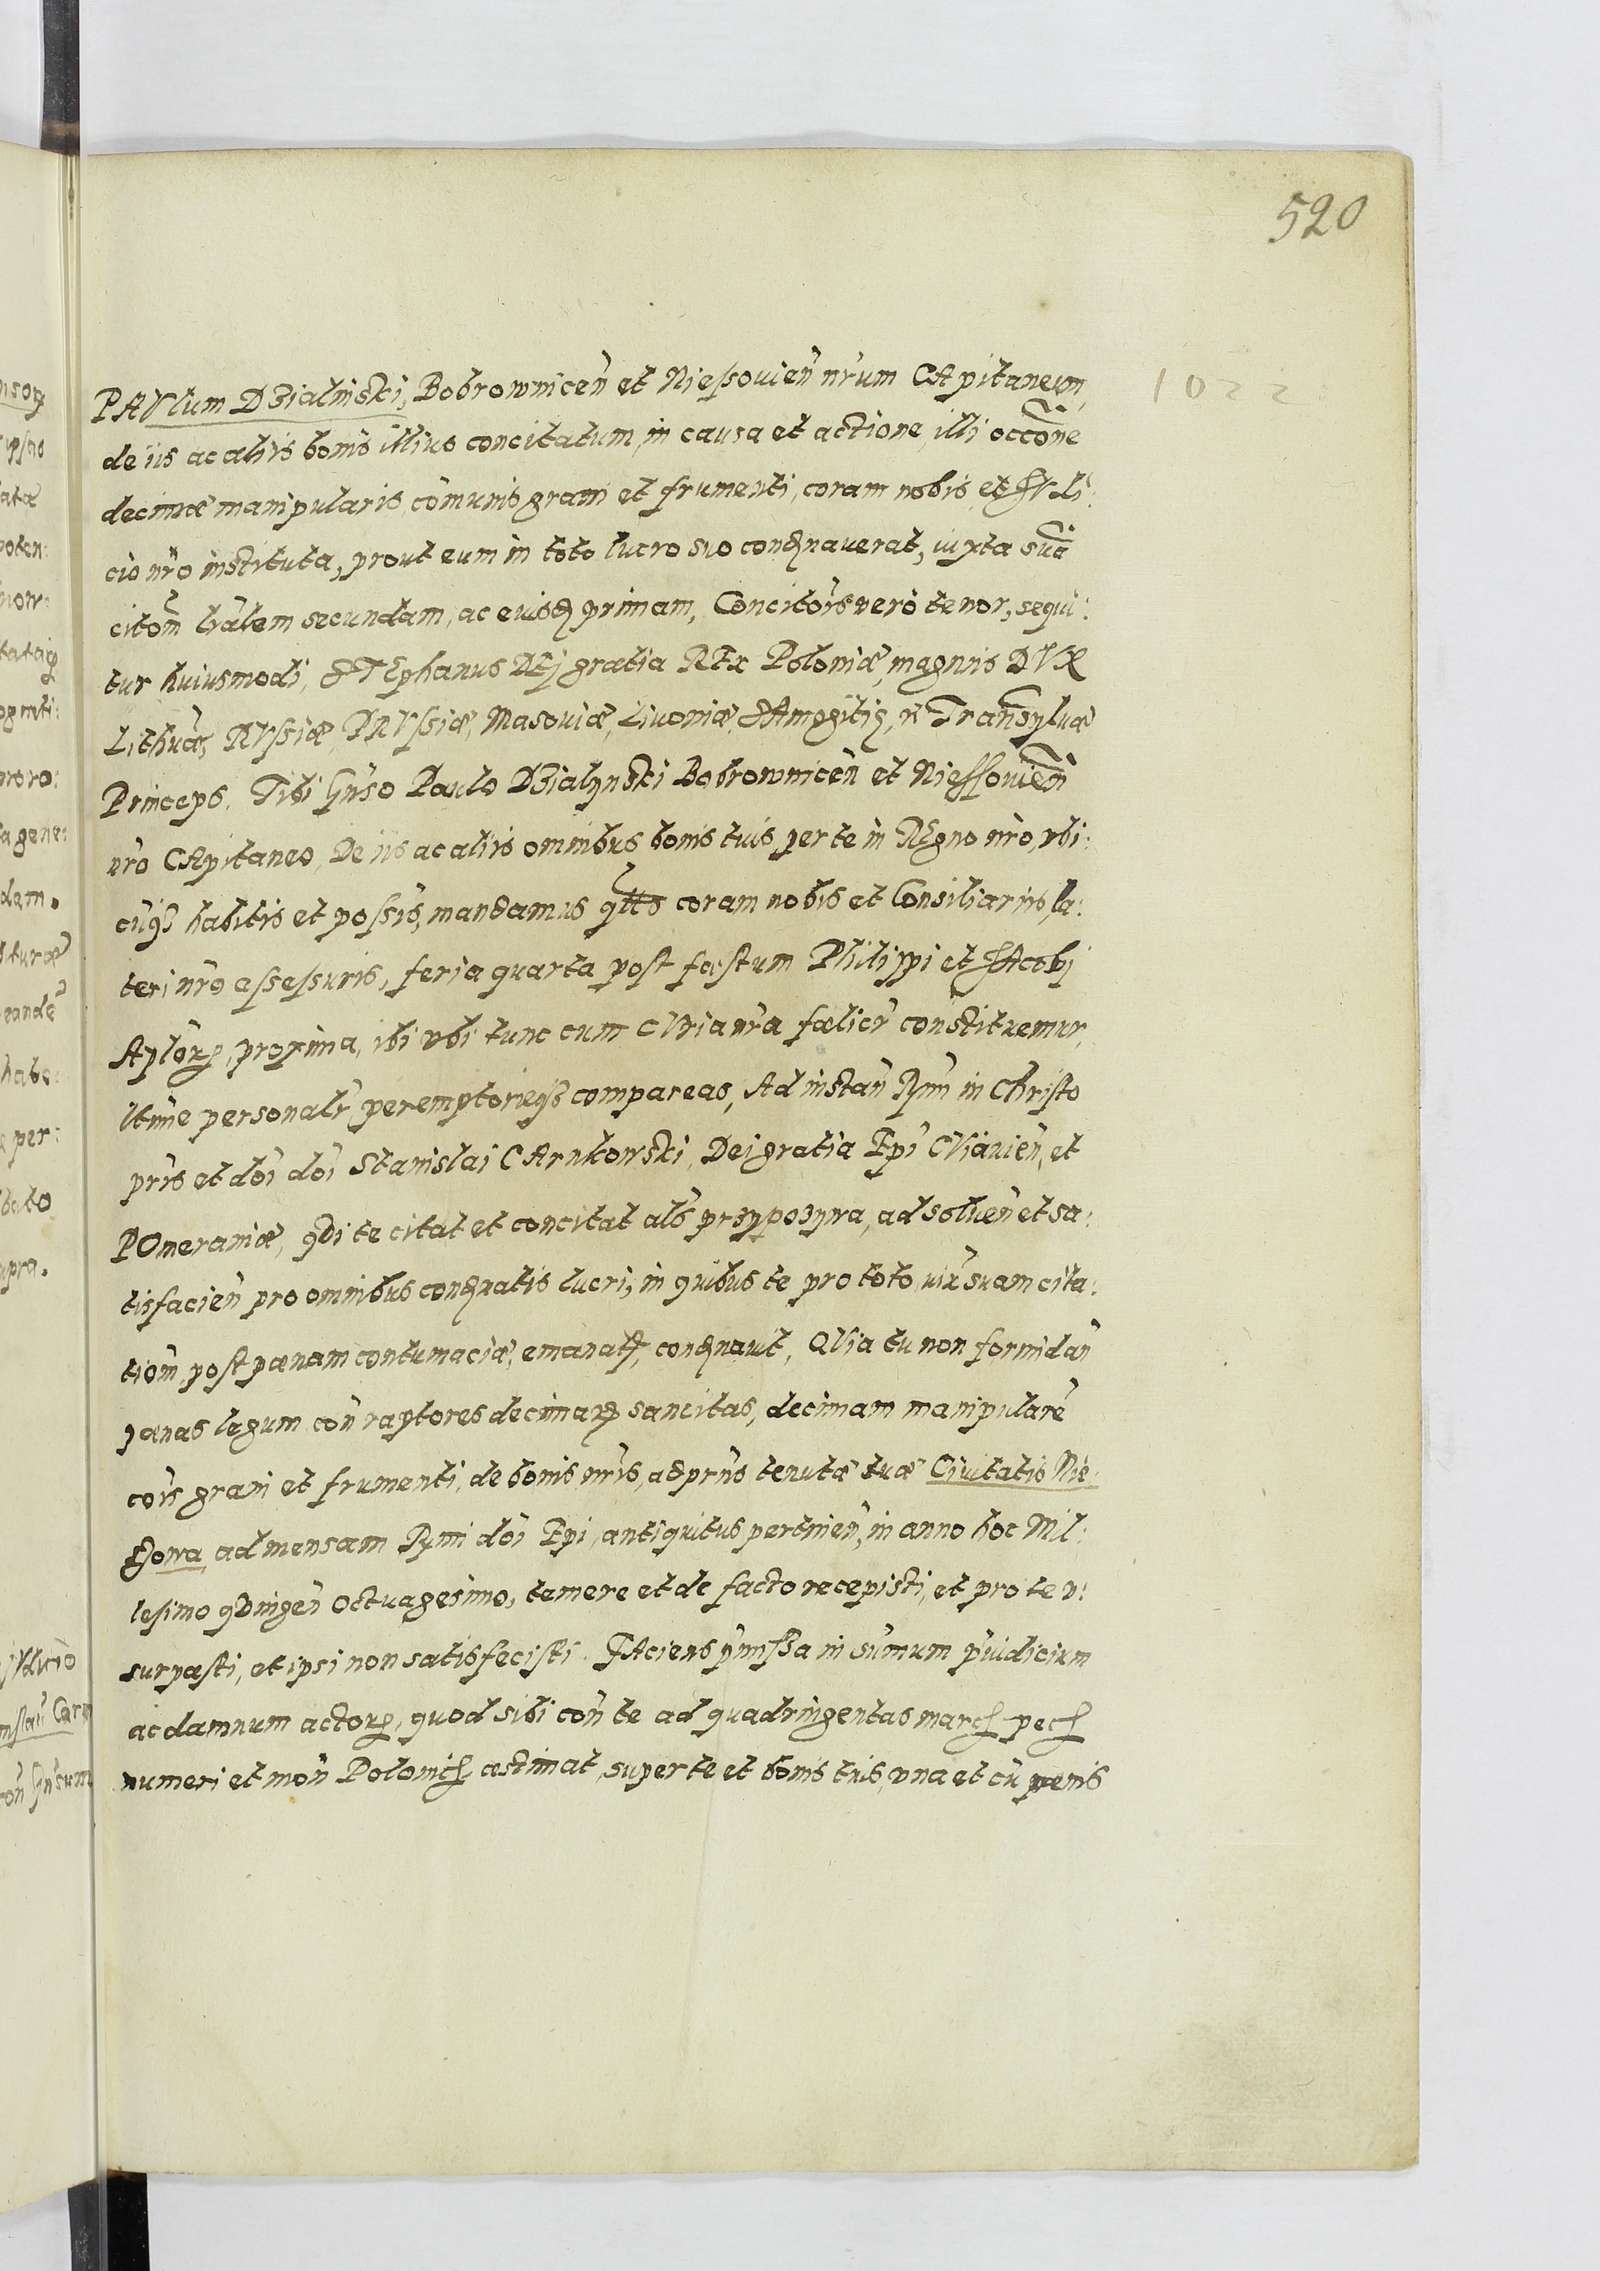 520
1022
PAVlum DZialinski, Bobrownicen̄ et Nieſsouien̄ nr̄um CApitaneum,
de iis ac aliis bonis illius concitatum, in causa et actione, illi occōne
decimæ manipularis, com̄unis grani et frumenti, coram nobis, et IVdi:
cio nr̄o instituta, prout eum in toto lucro suo condnauerat, iuxta suā
citōm lrālem secundam, ac eiusd primam, Concitōis vero tenor, sequi:
tur huiusmodi, STEphanus DEj gratia REx Poloniæ, magnus DVX
Lithuæ, RVſsiæ, PRVſsiæ, Masouiæ, Liuoniæ, SAmogitiæ, Transyluæ
Princeps. Tibi Gn̄so Paulo DZialynski Bobrownicen̄ et Nieſſouien̄
nr̄o CApitaneo, De iis ac aliis omnibus bonis tuis, per te in REgno nr̄o, vbi:
cūq3 habitis et poſsis, mandamus qtt9 coram nobis et Consiliariis, la:
teri nr̄o aſseſsuris, feria quarta post festum Philippi et IAcobi
Aplōrum, proxima, ibi vbi tunc cum CVria nr̄a fœlicr̄ constituemur,
ltime personalr̄ peremptorieq3 compareas, Ad instan̄ Rmī in Christo
pr̄is et dōi dōi Stanislai CArnkowski, Dei gratia Epī CViāuien̄, et
POmeraniæ, q̄di te citat et concitat alb̄ przypozywa, ad soluen̄ et sa:
tisfacien̄ pro omnibus condnatis lucri, in quibus te pro toto, iux̄ suam cita:
tiōm, post pœnam contumaciæ, emanat, condnauit, QVia tu non formidan̄
pœnas legum con̄ raptores decimarum sancitas, decimam manipularē
cōis grani et frumenti, de bonis nr̄is, ad prn̄s tenutæ tuæ Ciuitatis Nie:
ſzowa, ad mensam Rmī dōi Epi, antiquitus pertinen̄, in anno hoc Mil:
lesimo qūingen̄ Octuagesimo, temere et de facto recepisti, et pro te v:
surpasti, et ipsi non satisfecisti. FAciens p̄miſsa in sum̄um p̄iudicium
ac damnum actorum, quod sibi con̄ te ad quadringentas march pech
numeri et mon̄ Polonich æstimat, super te et bonis tuis, vna et cū pœnis